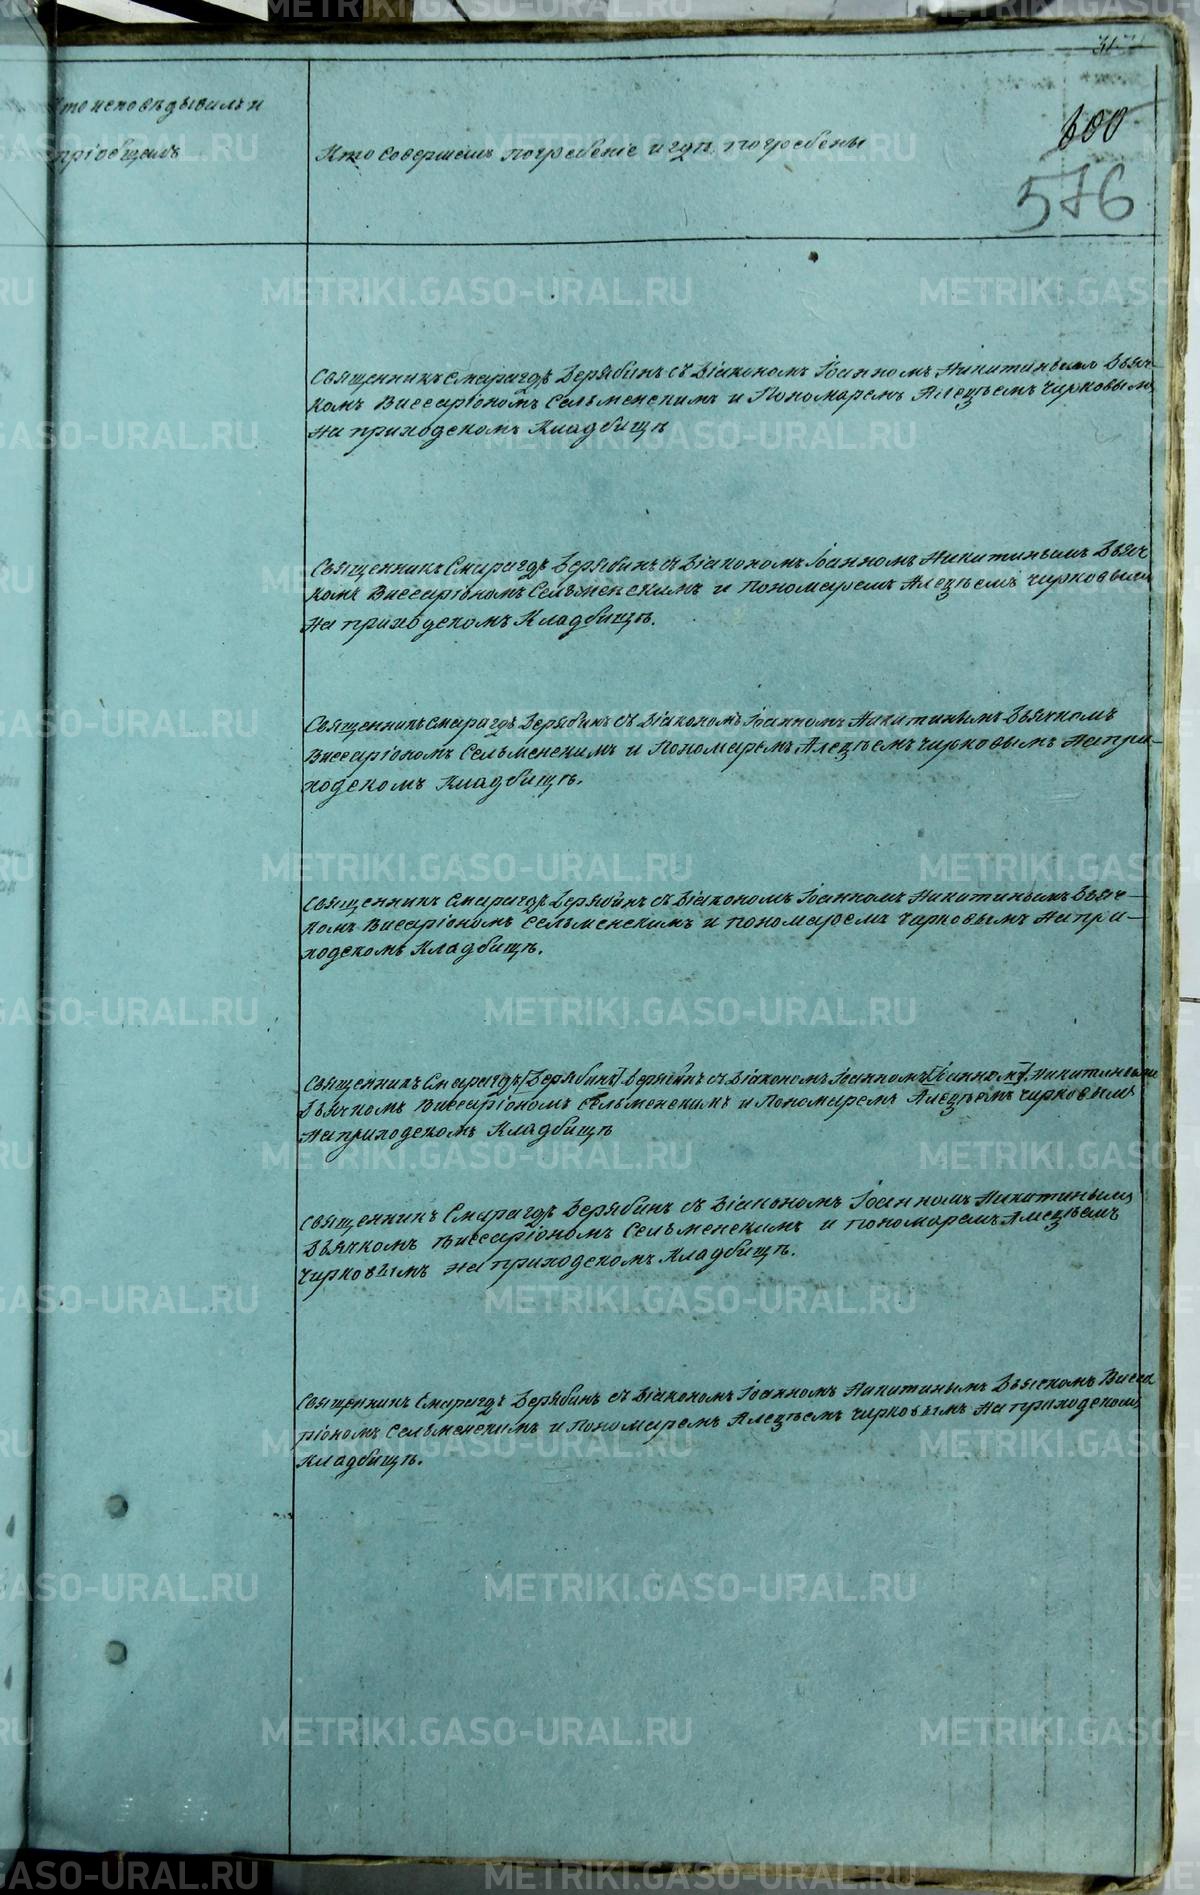 600
576
Кто исповѣдывалъ и
пріобщалъ
Кто совершалъ погребеніе и гдѣ погребены
Священникъ Смарагдъ Дерябинъ съ Діакономъ Іоанномъ Никитинымъ Дьяч-
комъ Виссаріономъ Сельменскимъ и Пономаремъ Алеѯѣемъ Чирковымъ
На приходскомъ Кладбищѣ
Священникъ Смарагдъ Дерябинъ съ Діакономъ Іоанномъ Никитинымъ Дьяч
комъ Виссаріономъ Сельменскимъ и Пономаремъ Алеѯѣемъ Чирковымъ
На приходскомъ Кладбищѣ.
Священникъ Смарагдъ Дерябинъ съ Діакономъ Іоанномъ Никитинымъ Дьячкомъ
Виссаріономъ Сельменскимъ и Пономаремъ Алеѯѣемъ Чирковымъ На при-
ходскомъ Кладбищѣ.
Священникъ Смарагдъ Дерябинъ съ Діакономъ Іоанномъ Никитинымъ Дьяч-
комъ Висаріономъ Сельменскимъ и пономаремъ Чирковымъ На при-
ходскомъ Кладбищѣ.
Священникъ Смарагдъ [Дерябинъ] Дерябинъ съ Діакономъ Іоанномъ [Іоанномъ] Никитинымъ
Дьячкомъ Виссаріономъ Сельменскимъ и Пономаремъ Алеѯѣемъ Чирковымъ
На приходскомъ Кладбищѣ
Священникъ Смарагдъ Дерябинъ съ Діакономъ Іоанномъ Никитинымъ
Дьячкомъ Виссаріономъ Сельменскимъ и пономаремъ Алеѯѣемъ
Чирковымъ На приходскомъ Кладбищѣ.
Священникъ Смарагдъ Дерябинъ съ Діакономъ Іоанномъ Никитинымъ Дьячкомъ Висса
ріономъ Сельменскимъ и Пономаремъ Алеѯѣемъ Чирковымъ На приходскомъ
Кладбищѣ.
METRIKI.GASO-URAL.RU